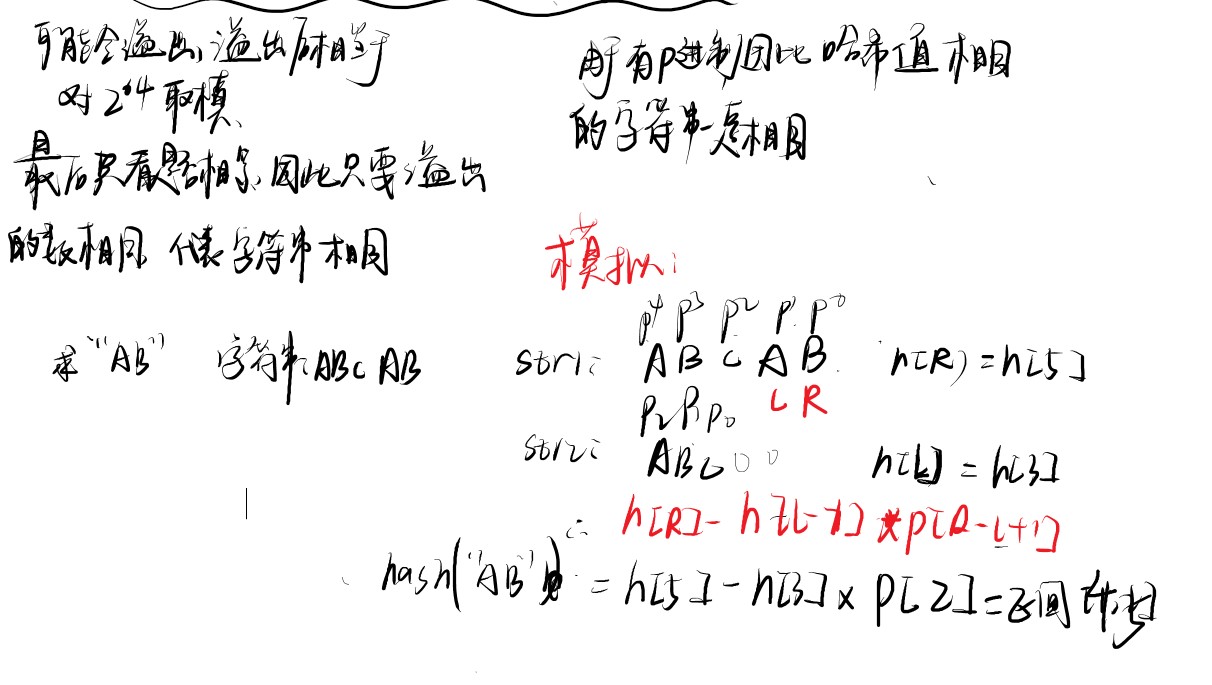 可能会溢出，溢出后相当于
对2^64取模
且
最后只看是否相等，因此只要溢出
的数相同 代表字符串相同
求"AB" 字符串：ABCAB
由于有P进制因此哈希值相同
的字符串一定相同
模拟：
p^4 p^3 p^2 p^1 p^0
str1: A B C A B h[R] = h[5]
L R
p2 p1 p0
str2: A B C 0 0 h[L] = h[3]
h[R] - h[L-1] * p[R-L+1]
hash("AB") = h[5] - h[3] × p[2] =